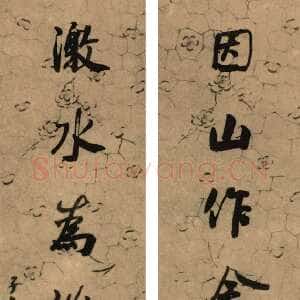 因山作
激水為
Shufawang.CN